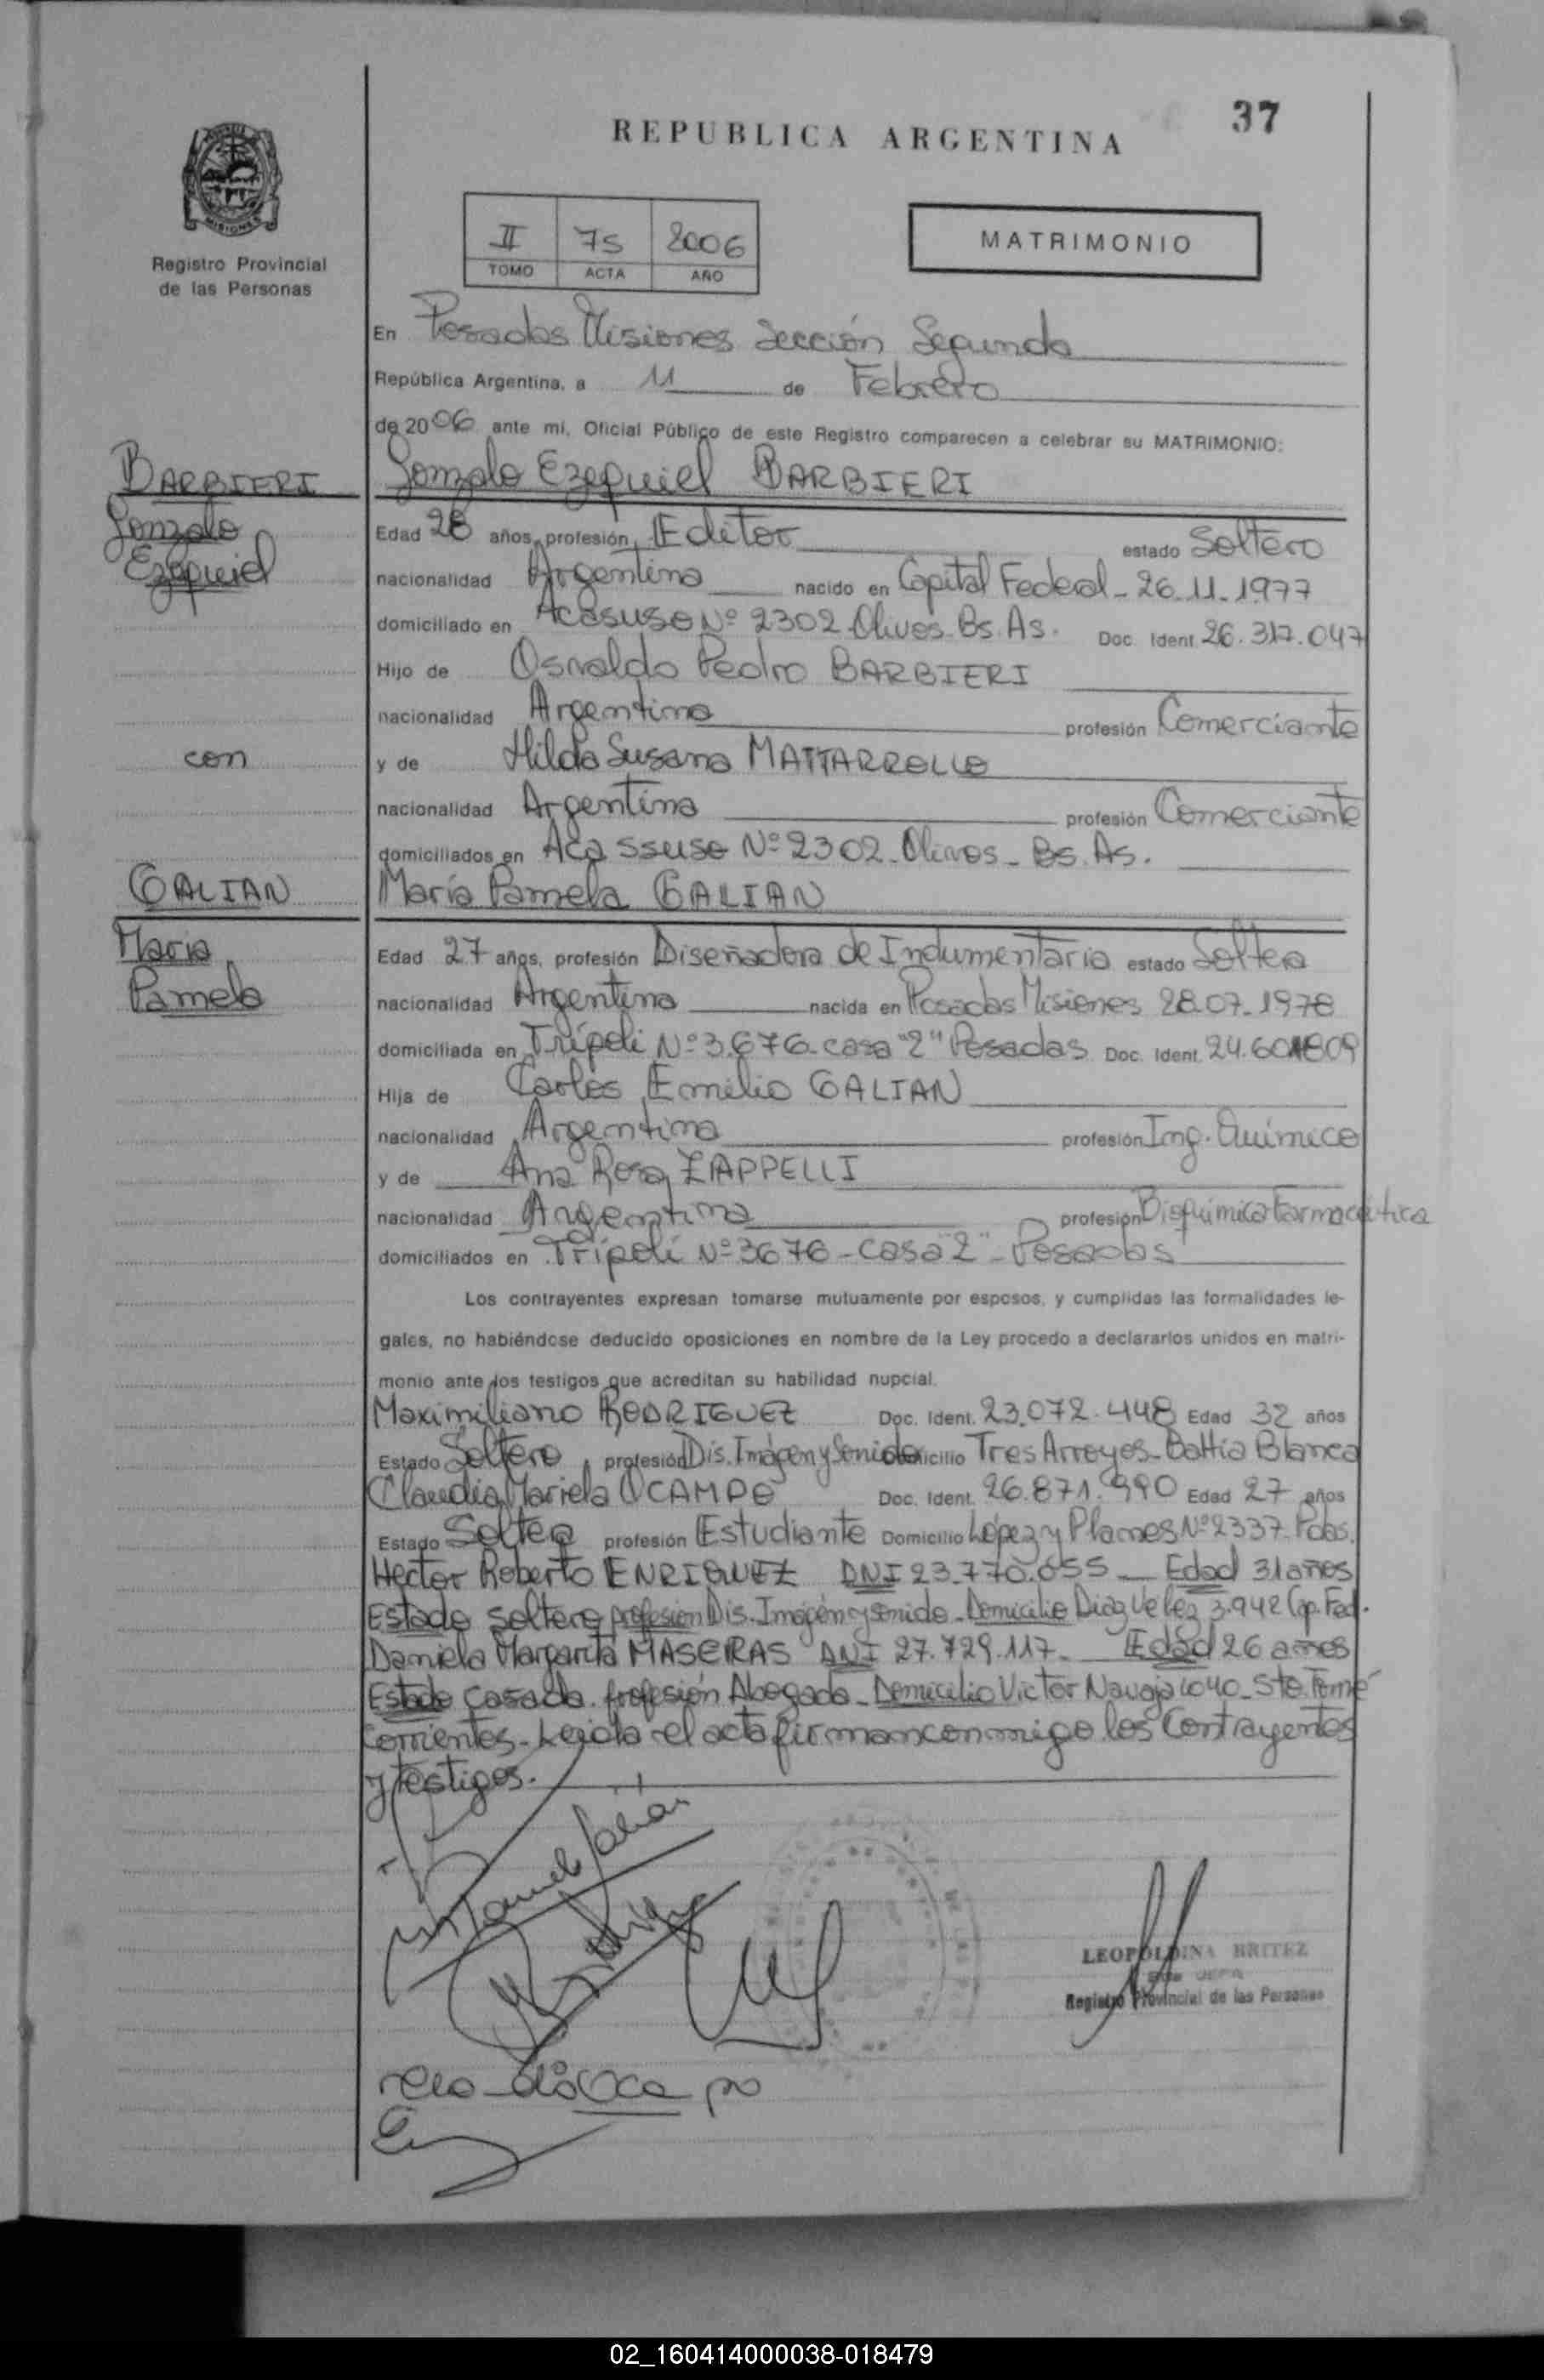 37
REPUBLICA ARGENTINA
MISIONES
Registro Provincial
de las Personas
II 75 2006
TOMO ACTA AÑO
MATRIMONIO
En Posadas Misiones Sección Segunda
República Argentina, a 11 de Febrero
de 2006 ante mi, Oficial Público de este Registro comparecen a celebrar su MATRIMONIO:
BARBIERI
Gonzalo
Ezequiel
Gonzalo Ezequiel BARBIERI
Edad 28 años, profesión Editor estado Soltero
nacionalidad Argentina nacido en Capital Federal - 26.11.1977
domiciliado en Acasuso Nº 2302 Olivos. Bs. As. Doc. Ident. 26.317.047
Hijo de Osvaldo Pedro BARBIERI
nacionalidad Argentina profesión Comerciante
con
y de Hilda Susana MATTARROLLO
nacionalidad Argentina profesión Comerciante
domiciliados en Acassuso Nº 2302 - Olivos - Bs. As.
GALIAN
María
Pamela
María Pamela GALIAN
Edad 27 años, profesión Diseñadora de Indumentaria estado Soltera
nacionalidad Argentina nacida en Posadas Misiones 28.07.1978
domiciliada en Trípoli Nº 3.676 - casa "2" Posadas Doc. Ident.
Hija de Carlos Emilio GALIAN
nacionalidad Argentina profesión Ing. Químico
y de Ana Rosa ZAPPELLI
nacionalidad Argentina profesión Bioquímica Farmacéutica
domiciliados en Trípoli Nº 3676 - casa "2" - Posadas
Los contrayentes expresan tomarse mutuamente por esposos, y cumplidas las formalidades le-
gales, no habiéndose deducido oposiciones en nombre de la Ley procedo a declararlos unidos en matri-
monio ante los testigos que acreditan su habilidad nupcial.
Maximiliano RODRIGUEZ Doc. Ident. 23.072.448 Edad 32 años
Estado Soltero profesión Dis. Imágen y Sonido Domicilio Tres Arroyos - Bahia Blanca
Claudia Mariela OCAMPO Doc. Ident. 26.871.990 Edad 27 años
Estado Soltera profesión Estudiante Domicilio López y Planes Nº 2337 Pdas.
Hector Roberto ENRIQUEZ DNI 23.770.655 - Edad 31 años
Estado Soltero profesión Dis. Imágen y sonido - Domicilio Diaz Velez 3.942 Cap. Fed.
Daniela Margarita MASEIRAS DNI 27.729.117 - Edad 26 años
Estado Casada. profesión Abogada - Domicilio Victor Navaja 1040 - Sto. Tomé
Corrientes - Leida el acta firman conmigo los Contrayentes
y testigos.
LEOPOLDINA BRITEZ
Registro Provincial de las Personas
02_160414000038-018479